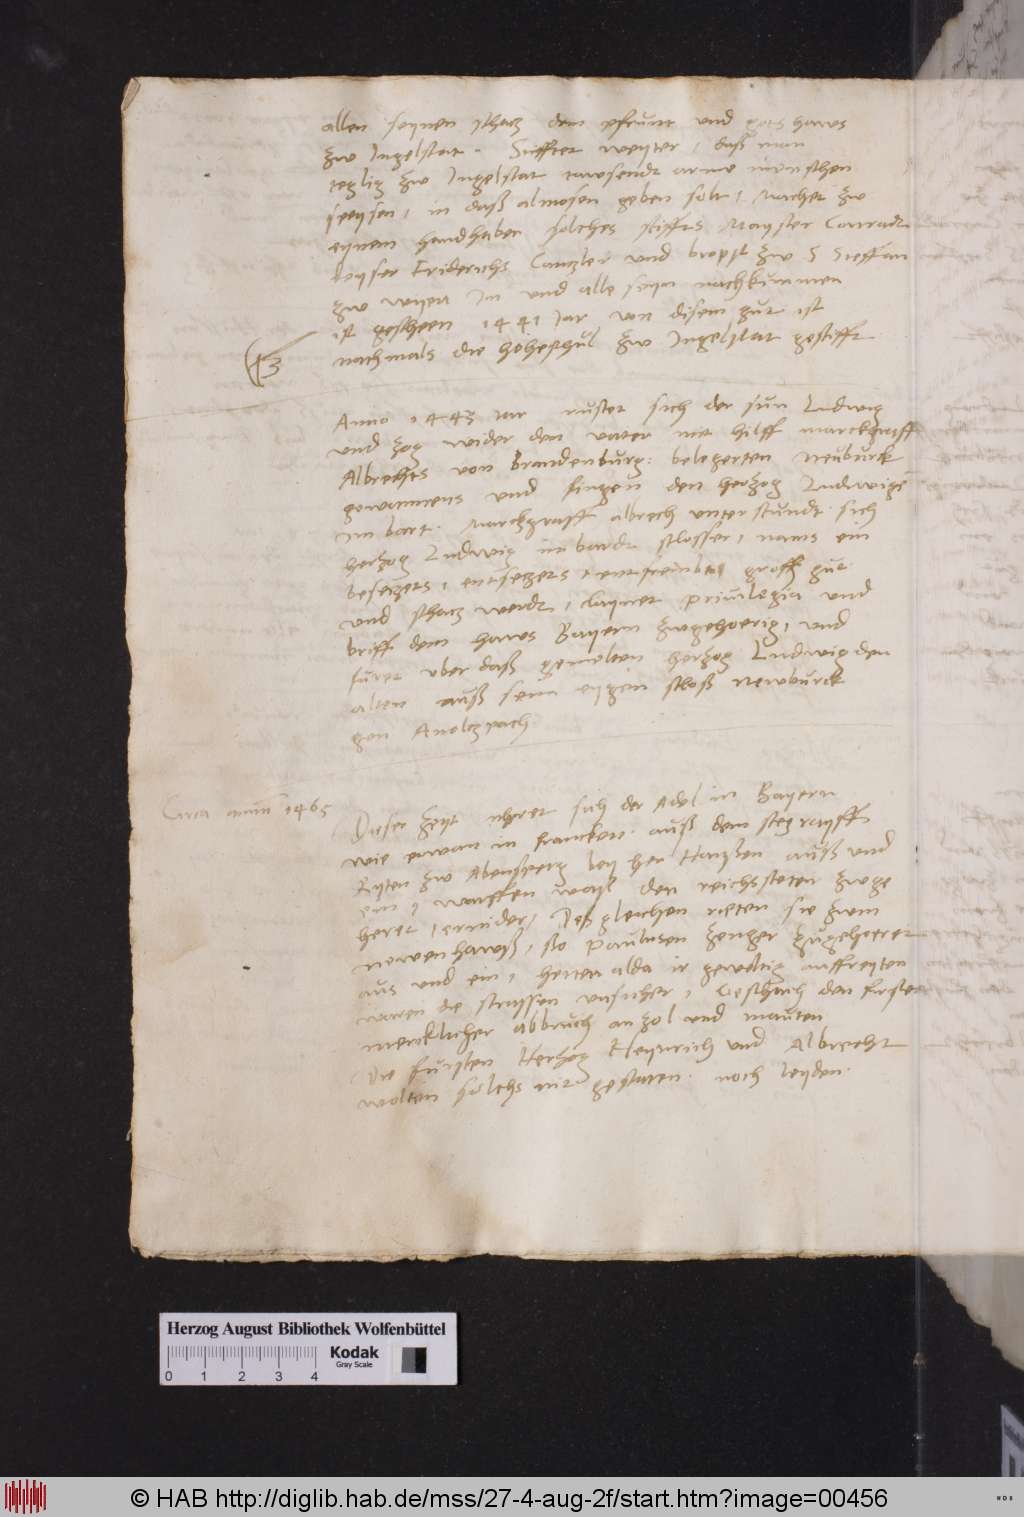 allen seynen schacz dem pfrunt und gots haws
zw Ingelstat. Stifftet weyter, daß man
teglig zw Ingelstat tawsendt arme menschen
speysen, in daß almosen geben solt, Machet zw
eynem handhaber solches stiffts Mayster Conradt
keyser Friderichs Canzler und bropst zw S Steffan
zw wyen Im und alle seyn nachkummen
ist gescheen 1441 Jar von disem gut ist
nachmals die hoheschul zw Ingelstat gestifft
Anno 1443 iar rustet sich der sun Ludwig
und zog wider den vater mit hilff marckgraff
Albrechts von Brandenburg: belegerten Neuburck
gewannens und fingen den herzog Ludwigen
im bart. Marckgraff albrech unterstundt sich
herzog Ludwig im bardt schlosser, nams ein
besetzets, entsetzets, groß gut
und schacz werdt, privilegia und
briff dem haws Bayern zwgehoerig, und
furet uber daß gemelten herzog Ludwig den
alten auß seim eygen schloß Newburck
gen Anolczpach.
Circa annum 1465
Dieser zeyt neret sich der Adel in Bayern
wie etwan in francken. auß dem stegrayff
Ryten zw Abensperg bey her Hanßen auß und
ein, wurffen den reichssteten zwge
heret ernider, Deßgleichen rieten sie zwm
newenhawß, so Paulusen zenger zugehoeret
aus und ein, hetten alda ir gewaltig auffreyten
waren die strassen unsicher, Geschach den fursten
mercklicher abbruch an zol und mauten
Die fursten Herzog Heynrich und Albrecht
wolten solchs nit gestaten noch leyden.
Herzog August Bibliothek Wolfenbüttel
Kodak
Gray Scale
0 1 2 3 4
© HAB http://diglib.hab.de/mss/27-4-aug-2f/start.htm?image=00456